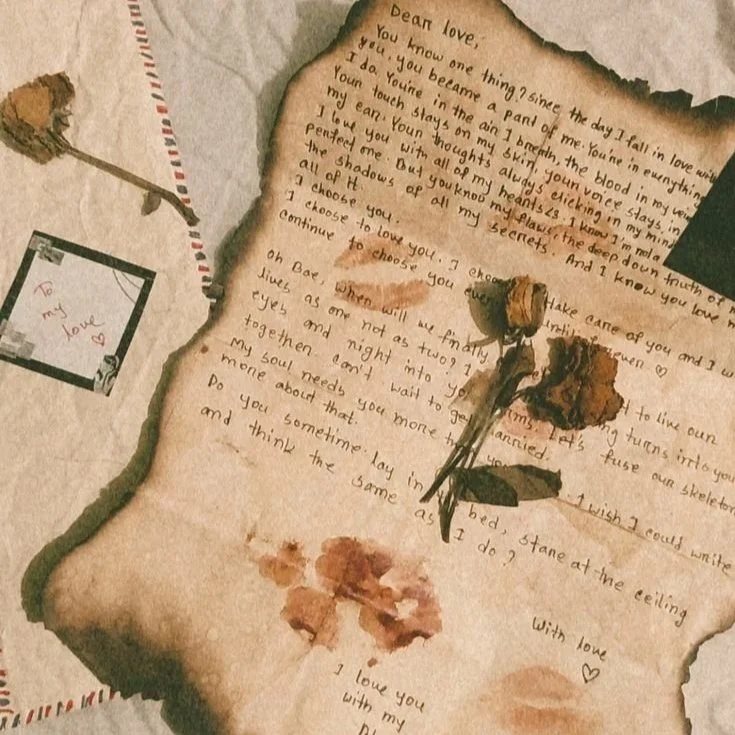 Dear love,
You know one thing? Since the day I fall in love with
you, you became a part of me. You're in everything
I do. You're in the air I breath, the blood in my vein
Your touch stays on my skin, your voice stays in
my ear. Your thoughts always clicking in my mind
I love you with all of my hearts<3. I know I'm not a
perfect one. But you know my flaws, the deep down truth of m
the shadows of all my secrets. And I know you love m
all of it.
I choose you.
I choose to love you. I choose take care of you and I w
continue to choose you ever until forever ♡
Oh Bae, when will we finally to live our
lives as one not as two? I ing turns into you
eyes and night into yo arms. Let's fuse our skeleton
together. Can't wait to get married.
My soul needs you more I wish I could write
more about that.
Do you sometime lay in bed, stare at the ceiling
and think the same as I do?
With love
♡
I love you
with my
To
my
love
♡